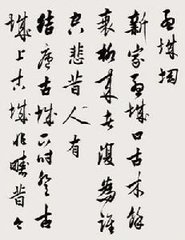 孟城坳
新家孟城口古木餘
衰柳來者復為誰
空悲昔人有
結廬古城下時登古
城上古城非疇昔今